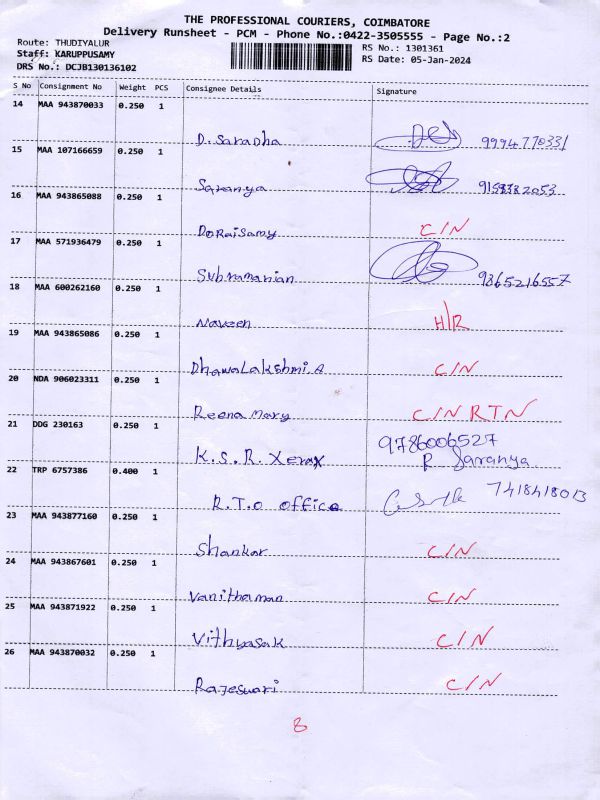 THE PROFESSIONAL COURIERS, COIMBATORE
Delivery Runsheet - PCM - Phone No.:0422-3505555 - Page No.:2
Route: THUDIYALUR RS No.: 1301361
Staff: KARUPPUSAMY RS Date: 05-Jan-2024
DRS No.: DCJB130136102
S No Consignment No Weight PCS Consignee Details Signature
14 MAA 943870033 0.250 1
D. Saradha 9994770331
15 MAA 107166659 0.250 1
Saranya
16 MAA 943865088 0.250 1
Doraisamy C/N
17 MAA 571936479 0.250 1
Subramanian 9365216557
18 MAA 600262160 0.250 1
Naveen H/R
19 MAA 943865086 0.250 1
DhanaLakshmi.A C/N
20 NDA 906023311 0.250 1
Reena Mary C/N RTN
21 DDG 230163 0.250 1
9786006527
K.S.R. Xerax R Saranya
22 TRP 6757386 0.400 1
R.T.O office 7418418013
23 MAA 943877160 0.250 1
Shankar C/N
24 MAA 943867601 0.250 1
Vanithaman C/N
25 MAA 943871922 0.250 1
Vithyasak C/N
26 MAA 943870032 0.250 1
Rajeswari C/N
8